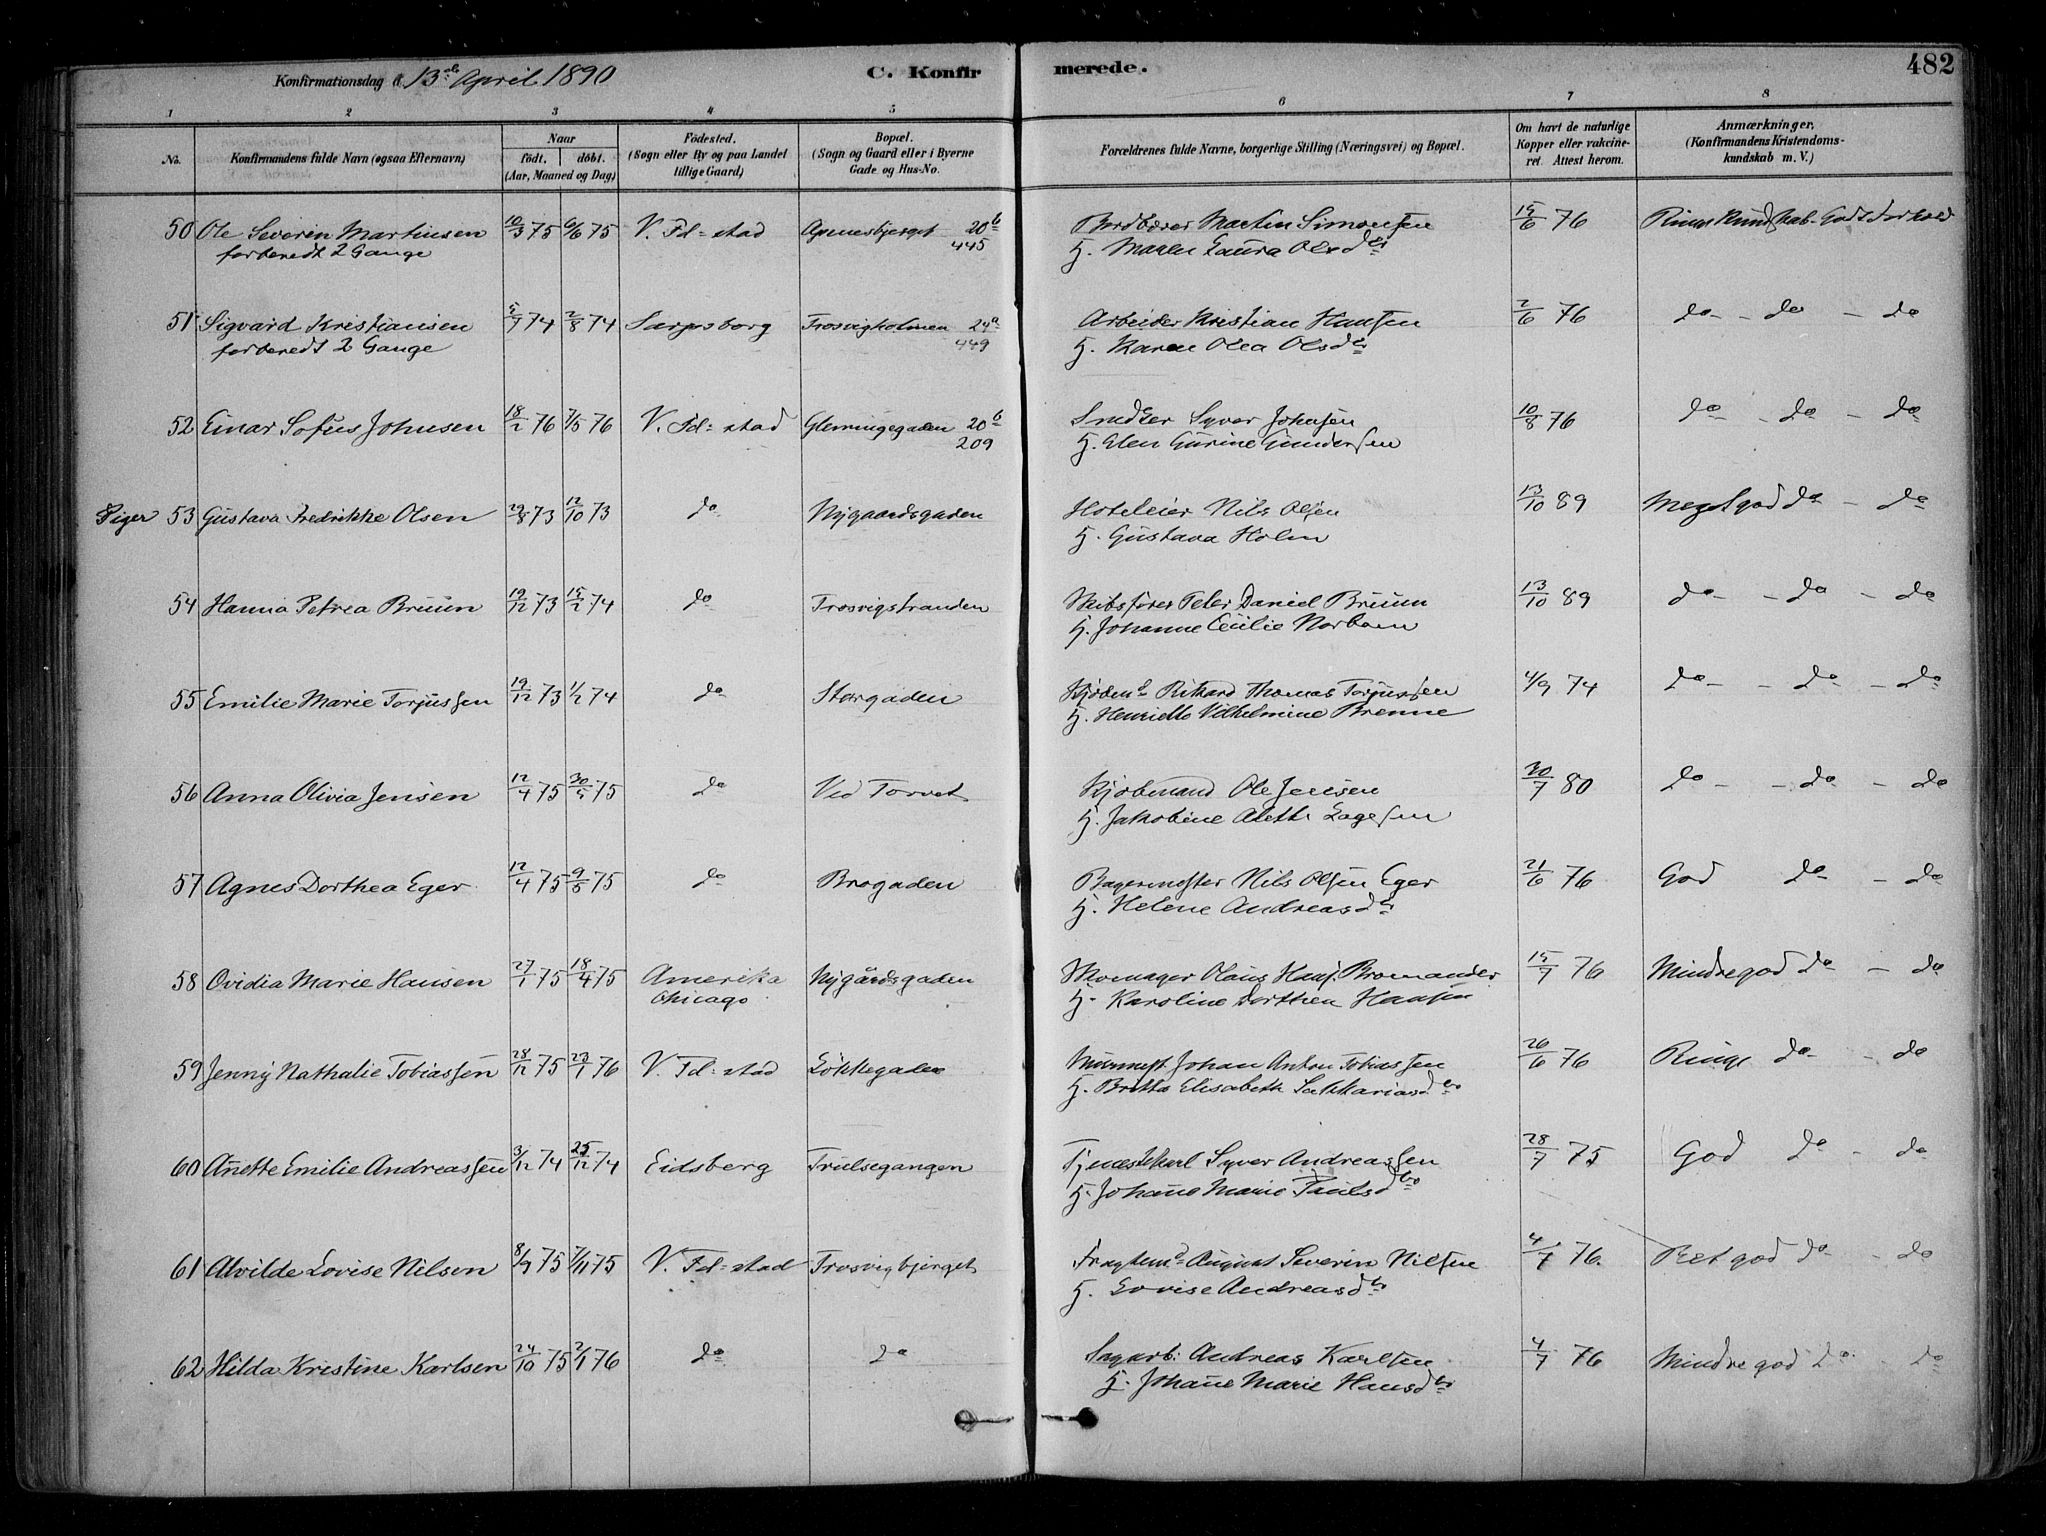 Konfirmationsdag d. 13de April 1890
C. Konfir
merede.
482
1 2 3 4 5 6 7 8
No.
Konfirmandens fulde Navn (ogsaa Efternavn)
Naar
født, døbt.
(Aar, Maaned og Dag)
Fødested.
(Sogn eller By og paa Landet tillige Gaard)
Bopæl.
(Sogn og Gaard eller i Byerne Gade og Hus-No.
Forældrenes fulde Navne, borgerlige Stilling (Næringsvei) og Bopæl.
Om havt de naturlige Kopper eller vakcineret. Attest herom.
Anmærkninger,
(Konfirmandens Kristendomskundskab m. V.)
50 Ole Severin Martinsen 10/3 75 6/6 75 V. Fd=stad Agnesbjerget 20b Martin Simonsen 15/6 76
forberedt 2 Gange 445 H. Maren Laura Olsdtr
51 Sigvard Kristiansen 5/7 74 2/8 74 Sarpsborg Trosvigholmen 24a Arbeider Kristian Hansen 2/6 76 do - do - do
forberedt 2 Gange 449 H. Karen Olea Olsdtr
52 Einar Sofus Johnsen 18/2 76 7/5 76 V. Fd=stad Glemmingegaden 20b Snedker Syver Johnsen 10/8 76 do - do - do
209 H. Elen Gurine Gundersen
Piger 53 Gustava Fredrikke Olsen 29/8 73 12/10 73 do Nygaardsgaden Hoteleier Nils Olsen 13/10 89 Meget god do - do
H. Gustava Holm
54 Hanna Petrea Bruun 19/12 73 15/2 74 do Trosvigstranden Skibsfører Peter Daniel Bruun 13/10 89 do - do - do
H. Johanne Cecilie
55 Emilie Marie Torjussen 19/12 73 1/2 74 do Storgaden Rikard Thomas Torjussen 4/9 74 do - do - do
H. Henriette Vilhelmine Brenne
56 Anna Olivia Jensen 12/4 75 30/5 75 do Ved Torvet Kjøbmand Ole Jensen 30/7 80 do - do - do
H. Jakobine
57 Agnes Dorthea Eger 12/4 75 9/5 75 do Brogaden Bagermester Nils Olsen Eger 21/6 76 God do - do
H. Helene Andreasdtr
58 Ovidia Marie Hansen 27/1 75 18/4 75 Amerika Nygårdsgaden Skomager Olaus Hans. Bromander 15/7 76 Mindre god do - do
Chicago H. Karoline Dorthea Hansen
59 Jenny Nathalie Tobiassen 28/12 75 23/1 76 V. Fd=stad Løkkegaden Johan Anton Tobiassen 26/6 76 Ringe do - do
H. Britta Elisabeth Sakkariasdtr
60 Anette Emilie Andreassen 3/12 74 25/12 74 Eidsberg Trulsegangen Tjenestekarl Syver Andreassen 28/7 75 God do - do
H. Johane Marie Paulsdtr
61 Alvilde Lovise Nilsen 8/9 75 7/11 75 V. Fd=stad Trosvigbjerget August Severin Nilsen 4/7 76. Ret god do - do
H. Lovise Andreasdtr
62 Hilda Kristine Karlsen 24/10 75 2/1 76 do do Sagarb. Andreas Karlsen 4/7 76 Mindre god do - do
H. Johane Marie Hansdtr